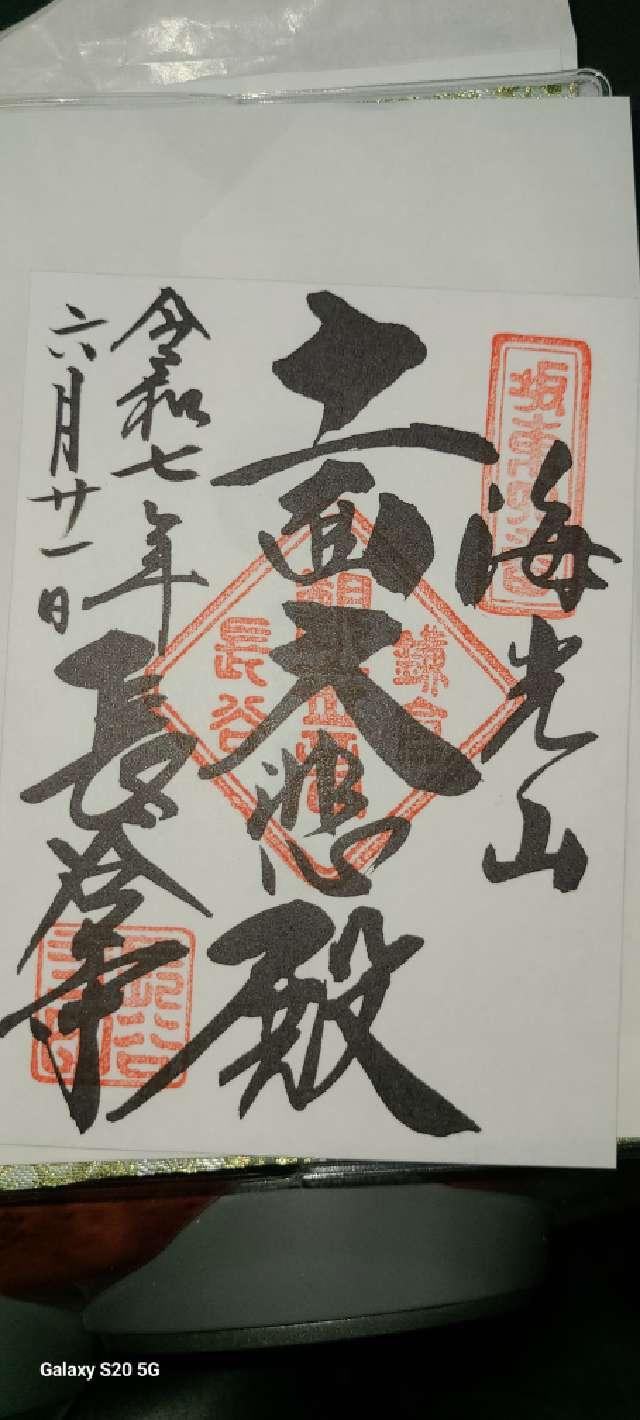 海光山
十一面大悲殿
令和七年
六月廿一日
長谷寺
鎌倉
長谷
Galaxy S20 5G